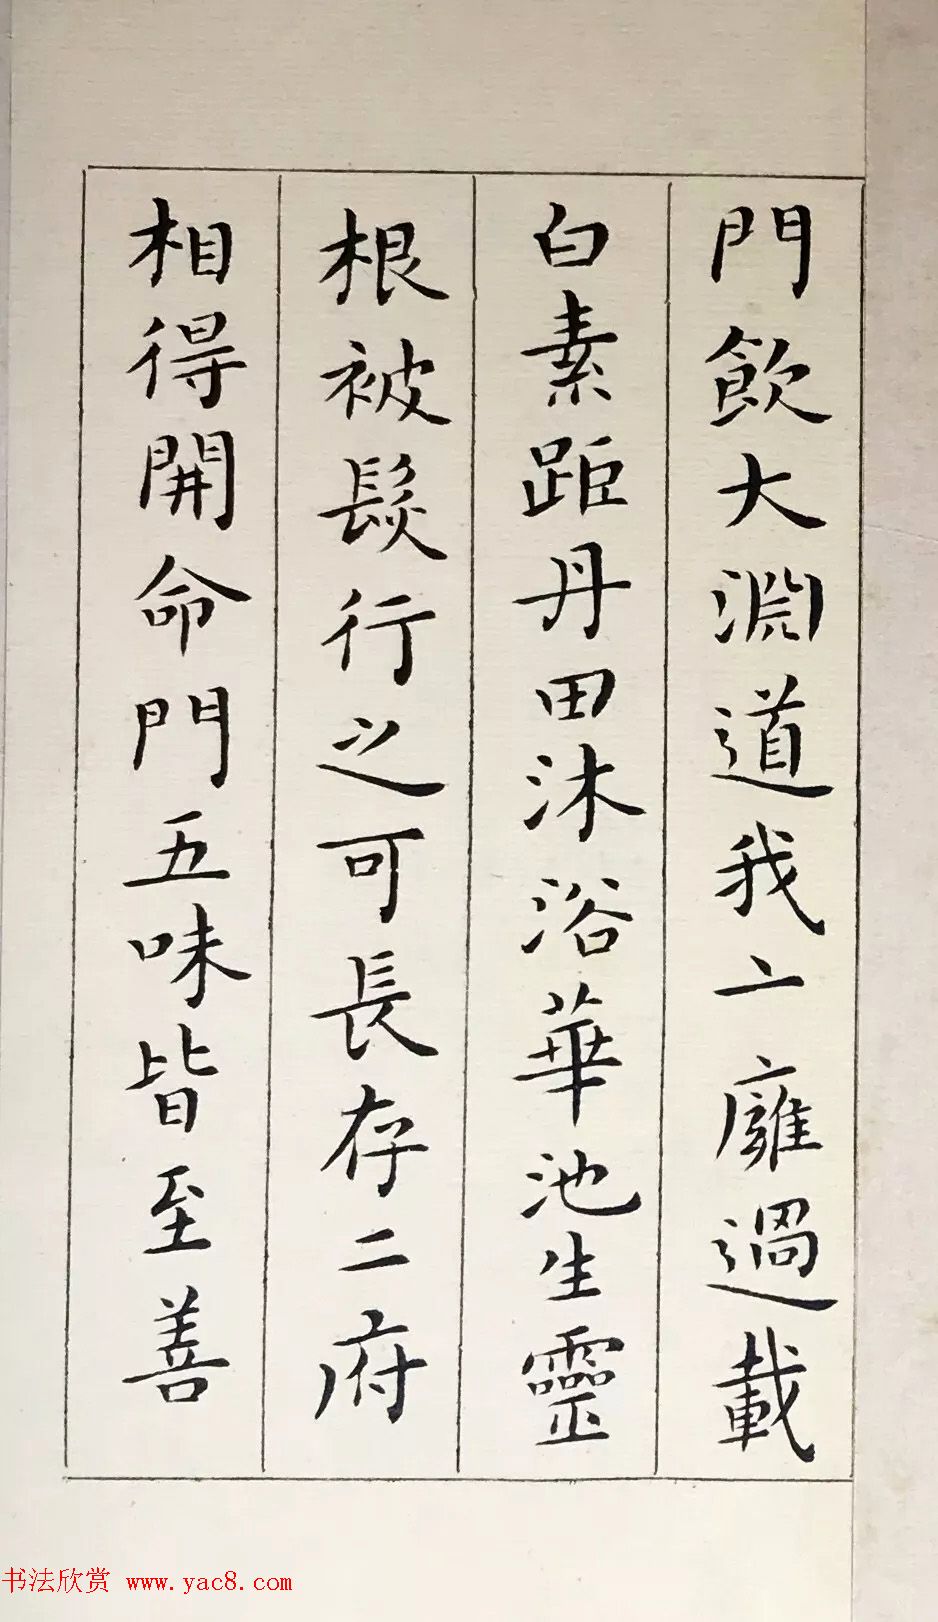 門飲大淵道我亠癰過載
白素距丹田沐浴華池生靈
根被髮行之可長存二府
相得開命門五味皆至善
书法欣赏 www.yac8.com